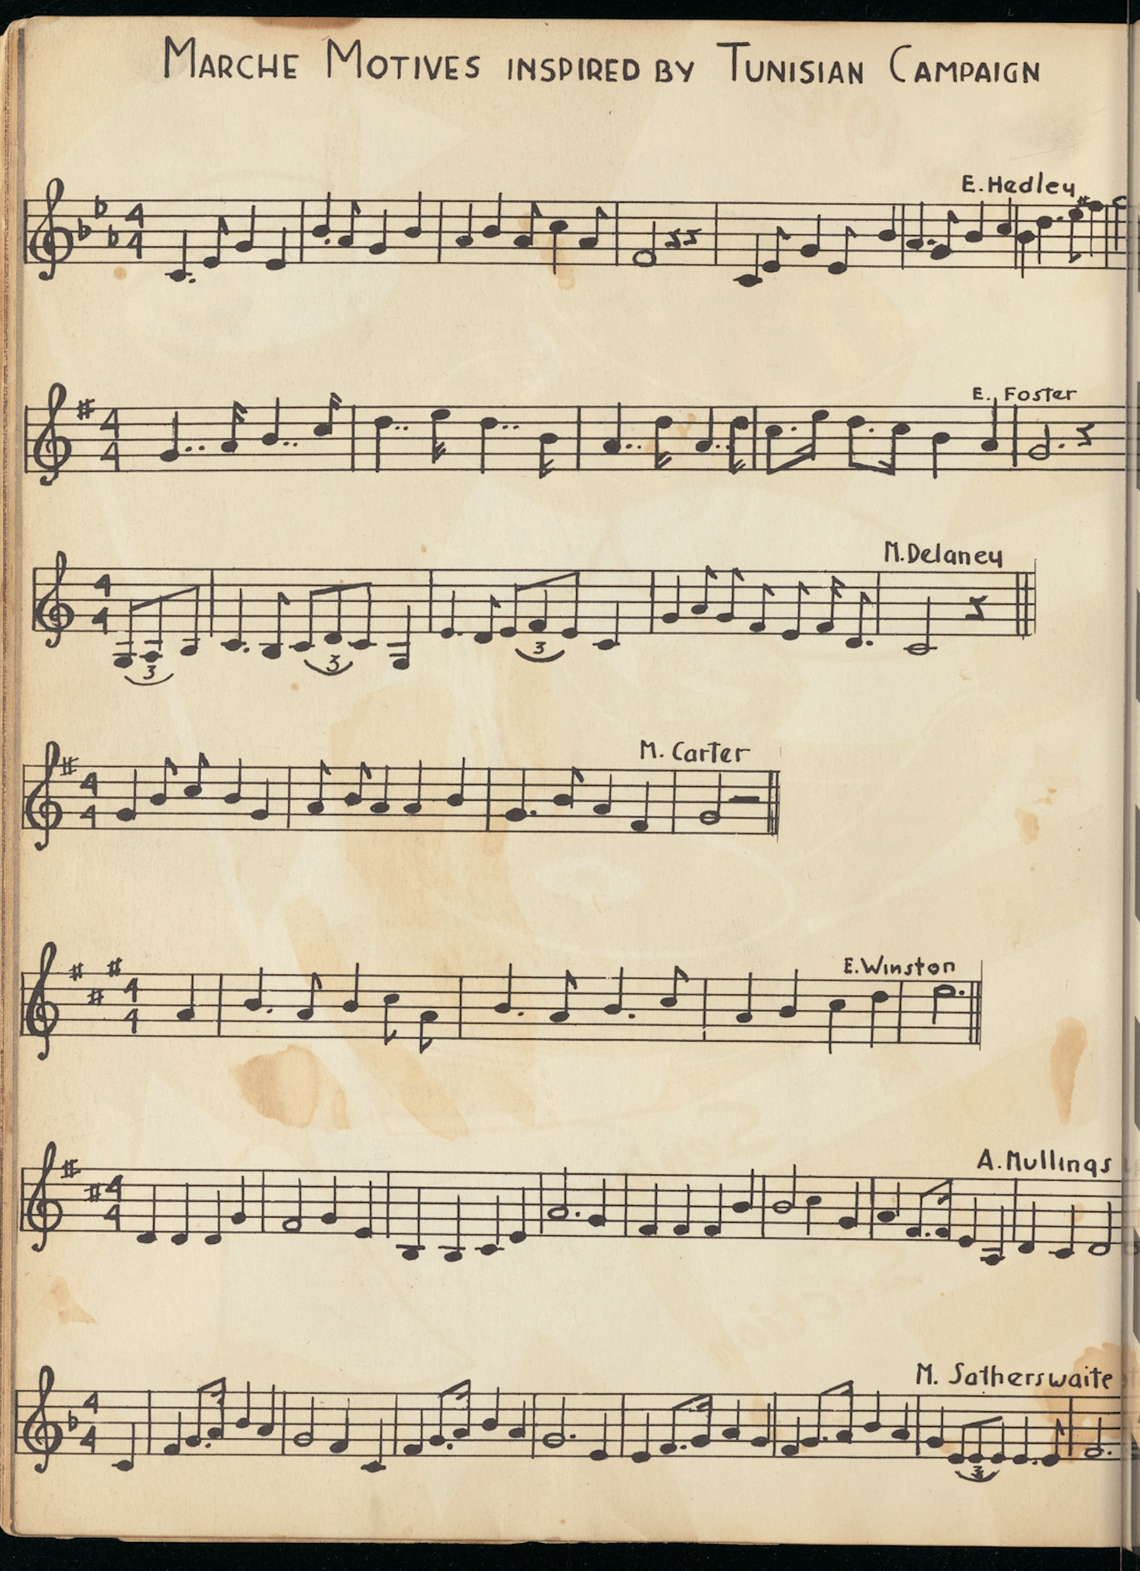 MARCHE MOTIVES INSPIRED BY TUNISIAN CAMPAIGN
E. Hedley
4
4
E. Foster
4
4
M. Delaney
4
4
3
3
3
M. Carter
4
4
E. Winston
4
4
A. Mullings
4
4
M. Satherswaite
4
4
3